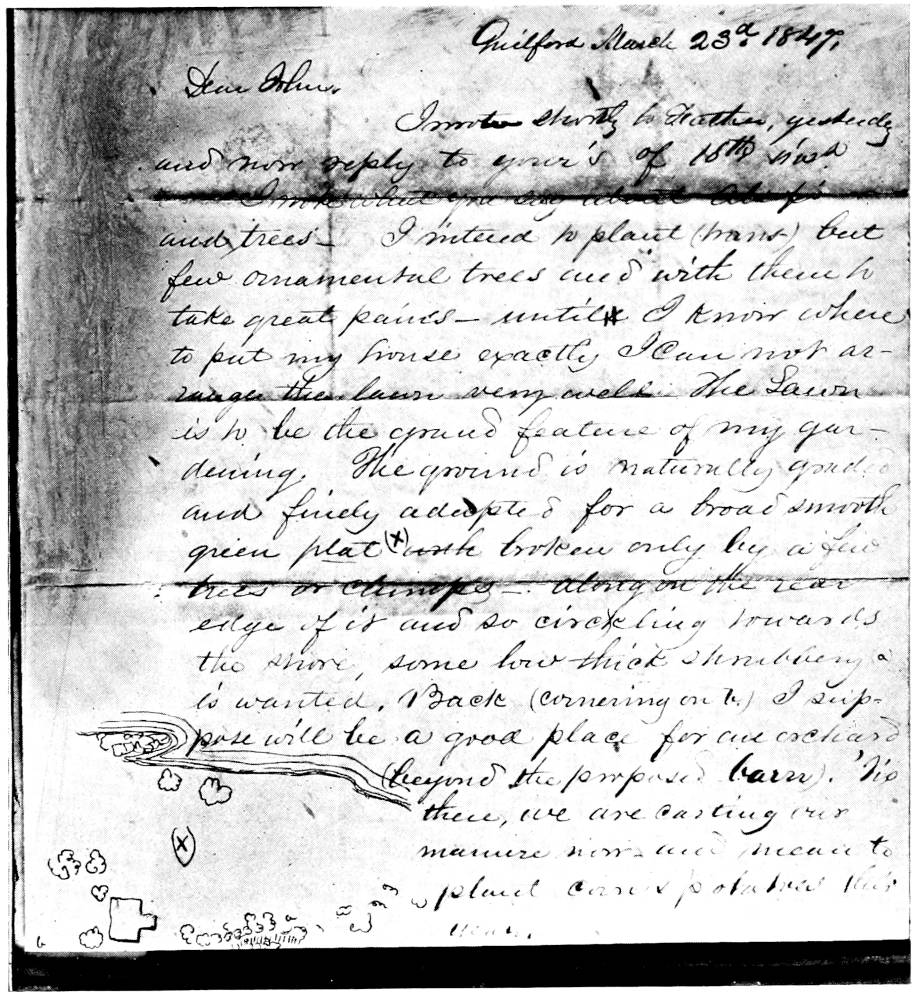 Guilford March 23d. 1847.
Dear John.
I wrote shortly to Father, yesterday
and now reply to your's of 18th inst
I note what you say about
and trees— I intend to plant (trans) but
few ornamental trees and with them to
take great pains— until I know where
to put my house exactly I can not ar-
range the lawn very well. The Lawn
is to be the grand feature of my gar-
dening. The ground is naturally graded
and finely adapted for a broad smooth
green plat (x) broken only by a few
trees or clumps— along on the rear
edge of it and so circling towards
the shore, some low thick shrubbery a
is wanted. Back (cornering on b.) I sup-
pose will be a good place for an orchard
(beyond the proposed barn). 'Tis
there, we are carting our
manure now and mean to
plant corn & potatoes this
year.
(x)
a
b